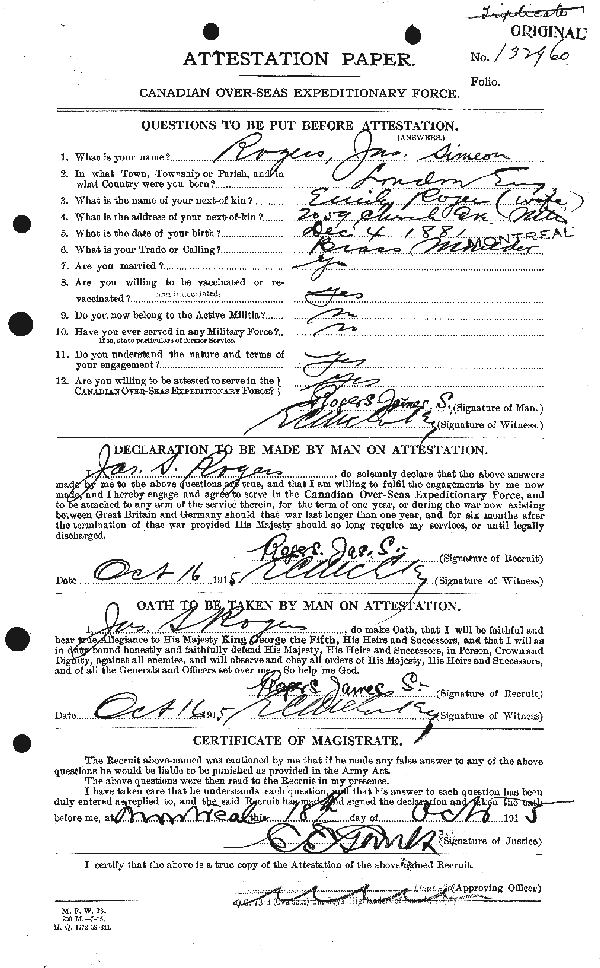 Triplicate
ORIGINAL
ATTESTATION PAPER.
No. 132960
Folio.
CANADIAN OVER-SEAS EXPEDITIONARY FORCE.
QUESTIONS TO BE PUT BEFORE ATTESTATION.
(ANSWERS.)
1. What is your name? Rogers, Jas. Simeon
2. In what Town, Township or Parish, and in
what Country were you born? London Eng
3. What is the name of your next-of-kin? Emily Roger (wife)
4. What is the address of your next-of-kin? 2059 Church
5. What is the date of your birth? Dec 4 1881
MONTREAL
6. What is your Trade or Calling? Brass Moulder
7. Are you married? Yes
8. Are you willing to be vaccinated or re-
vaccinated? Yes
9. Do you now belong to the Active Militia? No
10. Have you ever served in any Military Force? No
If so, state particulars of former Service.
11. Do you understand the nature and terms of
your engagement? Yes
12. Are you willing to be attested to serve in the
CANADIAN OVER-SEAS EXPEDITIONARY FORCE? Yes
Rogers James S. (Signature of Man.)
(Signature of Witness.)
DECLARATION TO BE MADE BY MAN ON ATTESTATION.
I, Jas. S. Rogers, do solemnly declare that the above answers
made by me to the above questions are true, and that I am willing to fulfil the engagements by me now
made, and I hereby engage and agree to serve in the Canadian Over-Seas Expeditionary Force, and
to be attached to any arm of the service therein, for the term of one year, or during the war now existing
between Great Britain and Germany should that war last longer than one year, and for six months after
the termination of that war provided His Majesty should so long require my services, or until legally
discharged.
Rogers. Jas. S. (Signature of Recruit)
Date Oct 16 1915 (Signature of Witness)
OATH TO BE TAKEN BY MAN ON ATTESTATION.
I, Jas S Rogers, do make Oath, that I will be faithful and
bear true Allegiance to His Majesty King George the Fifth, His Heirs and Successors, and that I will as
in duty bound honestly and faithfully defend His Majesty, His Heirs and Successors, in Person, Crown and
Dignity, against all enemies, and will observe and obey all orders of His Majesty, His Heirs and Successors,
and of all the Generals and Officers set over me. So help me God.
Rogers James S. (Signature of Recruit)
Date Oct 16 1915 (Signature of Witness)
CERTIFICATE OF MAGISTRATE.
The Recruit above-named was cautioned by me that if he made any false answer to any of the above
questions he would be liable to be punished as provided in the Army Act.
The above questions were then read to the Recruit in my presence.
I have taken care that he understands each question, and that his answer to each question has been
duly entered as replied to, and the said Recruit has made and signed the declaration and taken the oath
before me, at Montreal this 18th day of Oct 1915
(Signature of Justice)
I certify that the above is a true copy of the Attestation of the above-named Recruit.
(Approving Officer)
M. F. W. 23.